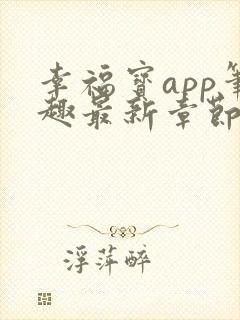 幸福宝app笔
趣最新章节
浮萍醉